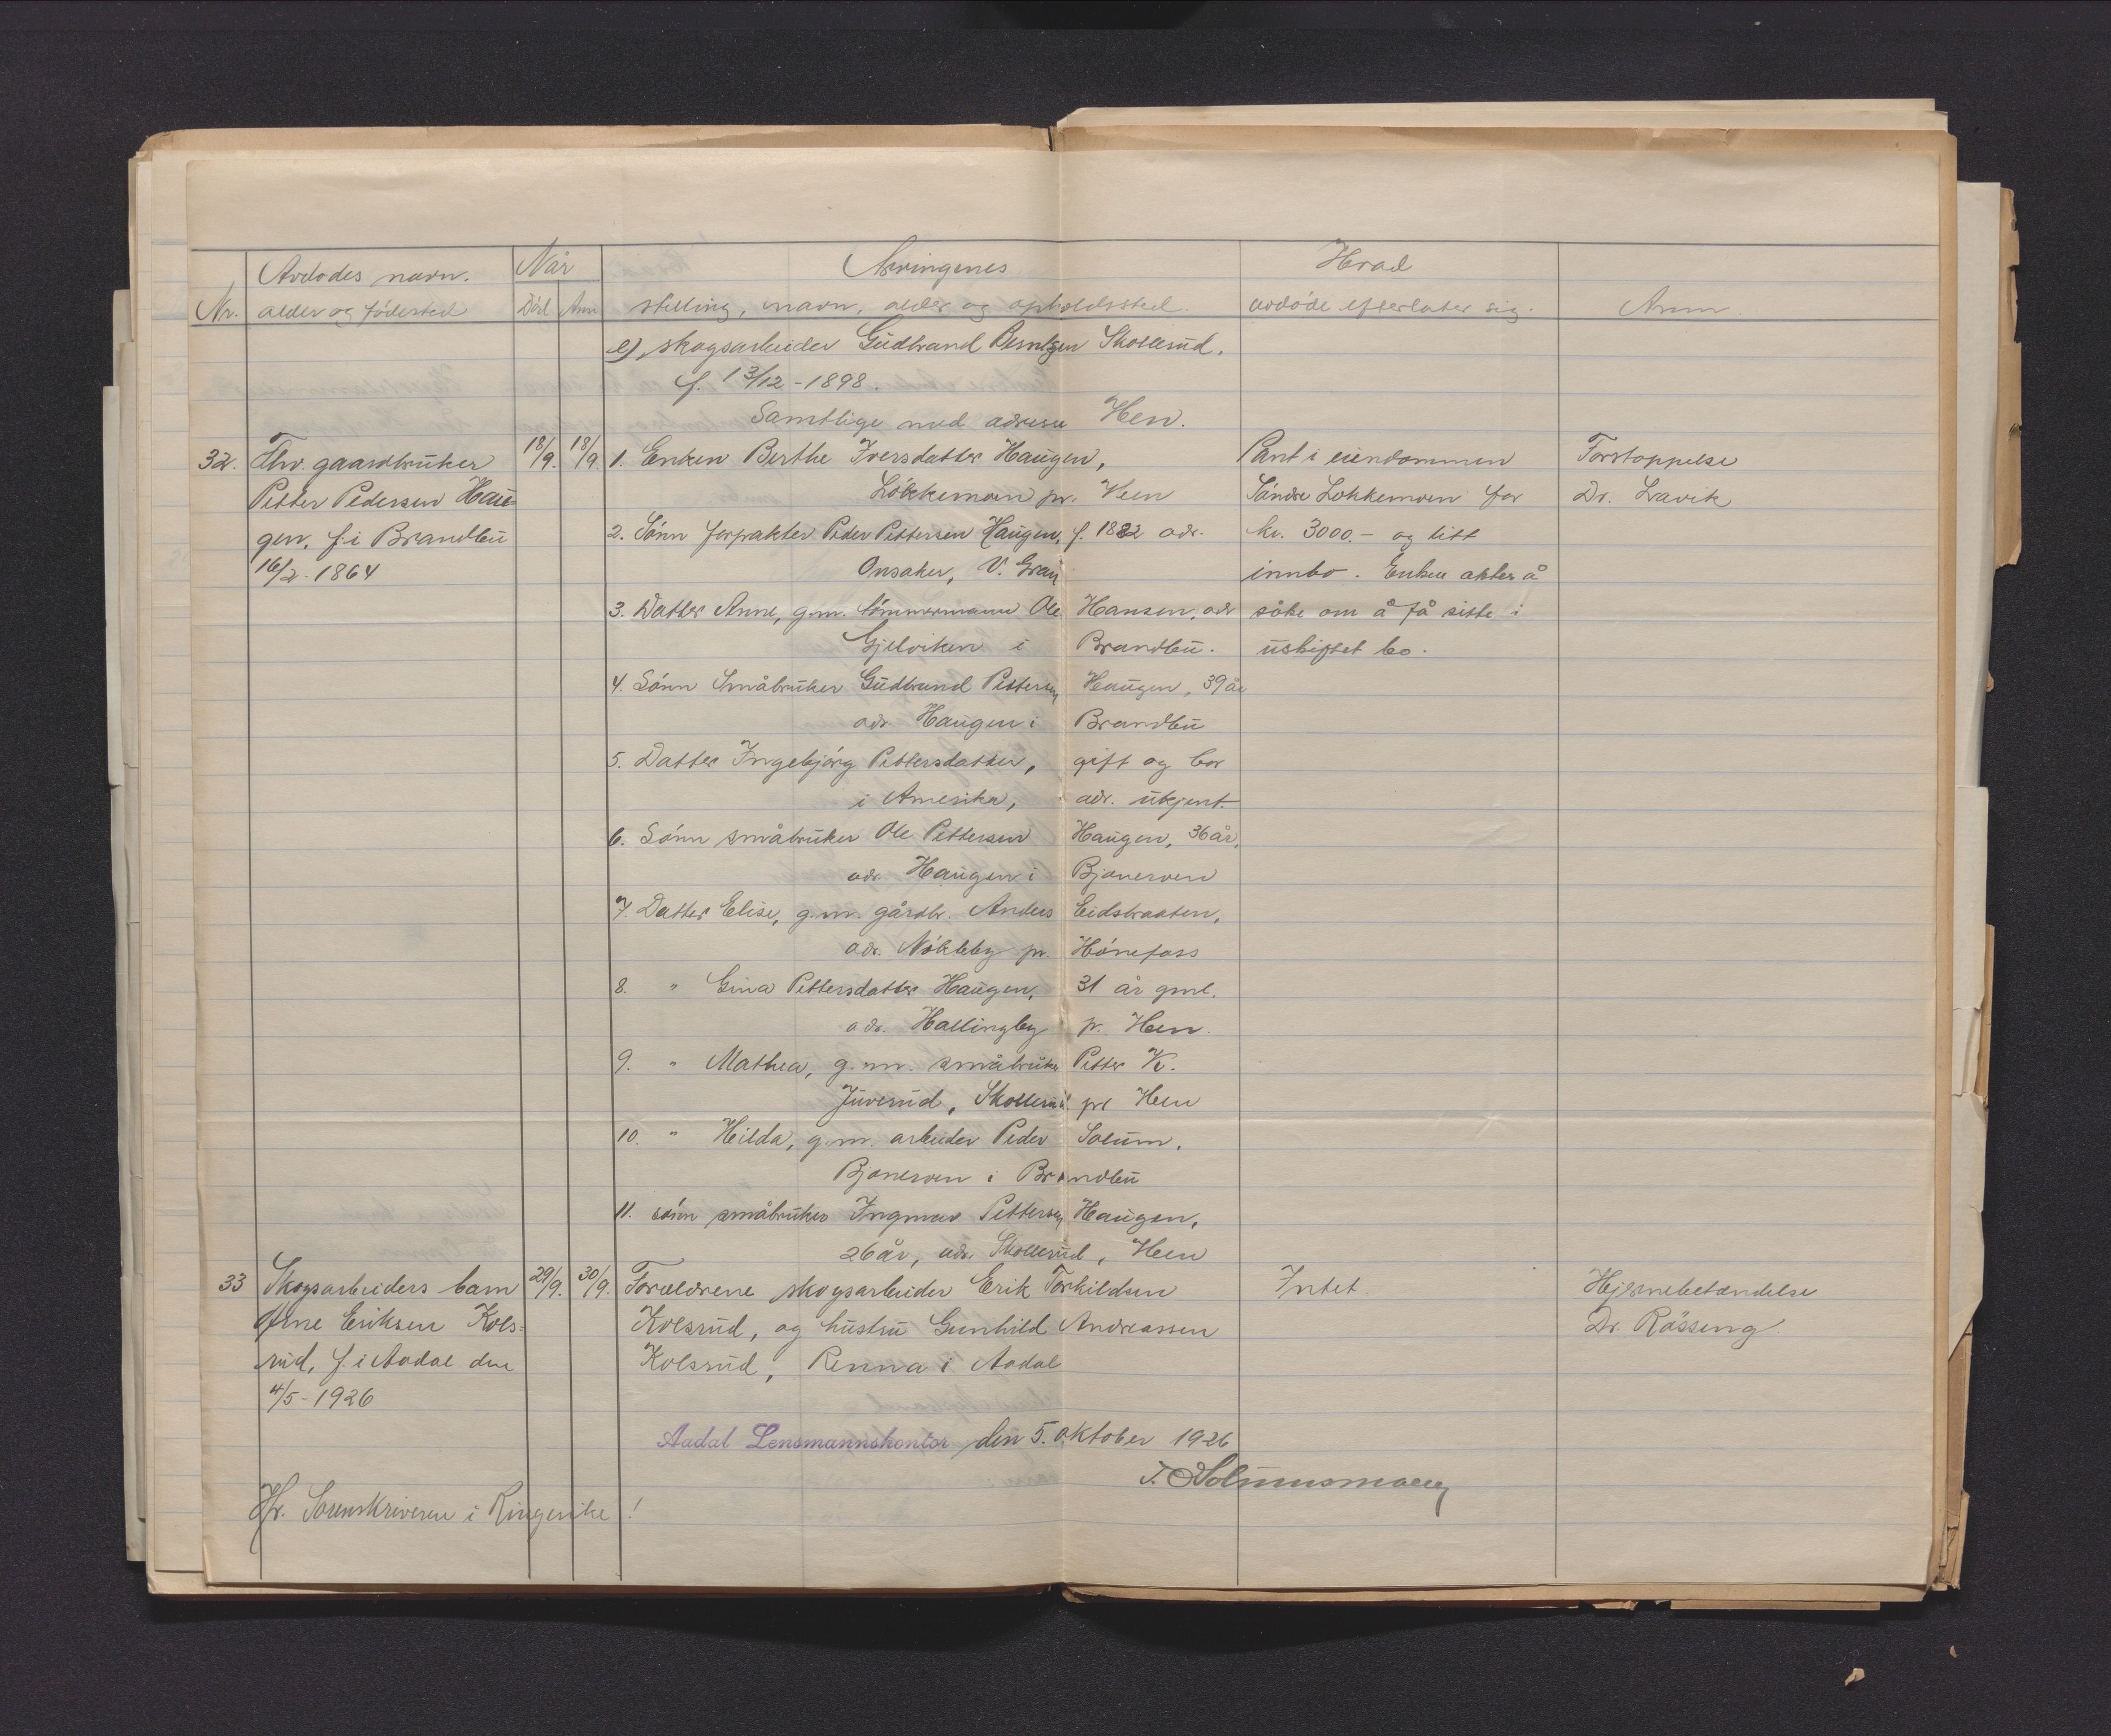 Nr.
Avdødes navn.
alder og fødested
Når
Død Anm
Arvingenes
stilling, navn, alder og opholdssted.
Hvad
avdøde efterlater sig.
Anm.
e) skogsarbeider Gudbrand Berntsen Skollerud.
f. 13/12 - 1898.
Samtlige med adresse Hen.
32. Fhv. gaardbruker
Petter Pedersen Hau=
gen, f. i Brandbu
16/2 - 1864
18/9. 18/9.
1. Enken Berthe Iversdatter Haugen,
Løkkemoen pr. Hen
2. Sønn forpakter Peder Pettersen Haugen, f. 1882 adr.
Onsaker, V. Gran
3. Datter Anne, g.m. tømmermann Ole Hansen, adr
Gjelviken i Brandbu.
4. Sønn Småbruker Gudbrand Pettersen Haugen, 39 år
adr. Haugen i Brandbu
5. Datter Ingebjørg Pettersdatter, gift og bor
i Amerika, adr. ukjent.
6. Sønn småbruker Ole Pettersen Haugen, 36 år,
adr. Haugen i Bjoneroen
7. Datter Elise, g.m. gårdbr. Anders Eidstraaten,
adr. Nøkleby pr. Hønefoss
8. " Gina Pettersdatter Haugen, 31 år gml.
adr. Hallingby p. Hen.
9. " Mathea, g.m. småbruker Petter K.
Juverud, Skollerud pr Hen
10. " Hilda, g.m. arbeider Peder Solum,
Bjoneroen i Brandbu
11. sønn småbruker Ingmar Pettersen Haugen,
26 år, adr. Skollerud, Hen
Pant i eiendommen
Søndre Løkkemoen for
kr. 3000.- og litt
innbo. Enken akter å
søke om å få sitte i
uskiftet bo.
Forstoppelse
Dr. Lavik
33 Skogsarbeiders barn
Arne Eriksen Kols=
rud, f. i Aadal den
4/5 - 1926
29/9. 30/9.
Foreldrene skogsarbeider Erik Torkildsen
Kolsrud, og hustru Gunhild Andreassen
Kolsrud, Renna i Aadal
Intet.
Hjernebetændelse
Dr. Røsseng.
Aadal Lensmannskontor den 5. oktober 1926
T. Solumsmoen
Hr. Sorenskriveren i Ringerike!